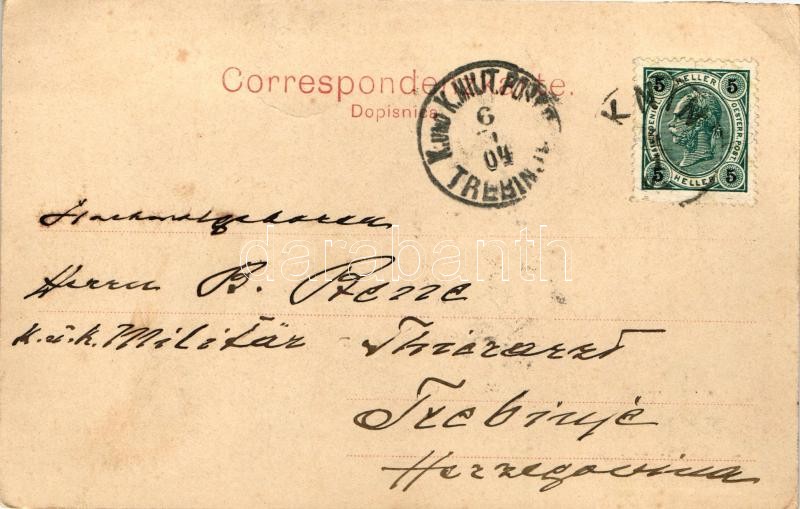 Correspondenzkarte.
Dopisnica
K. UND K. MILIT. POST
6
04
TREBINJE
5 HELLER 5
OESTERR. POST.
5 HELLER 5
Hochwohlgeboren
Herrn B. Bene
k. u. k. Militär Thierarzt
Trebinje
Herzegovina
darabanth